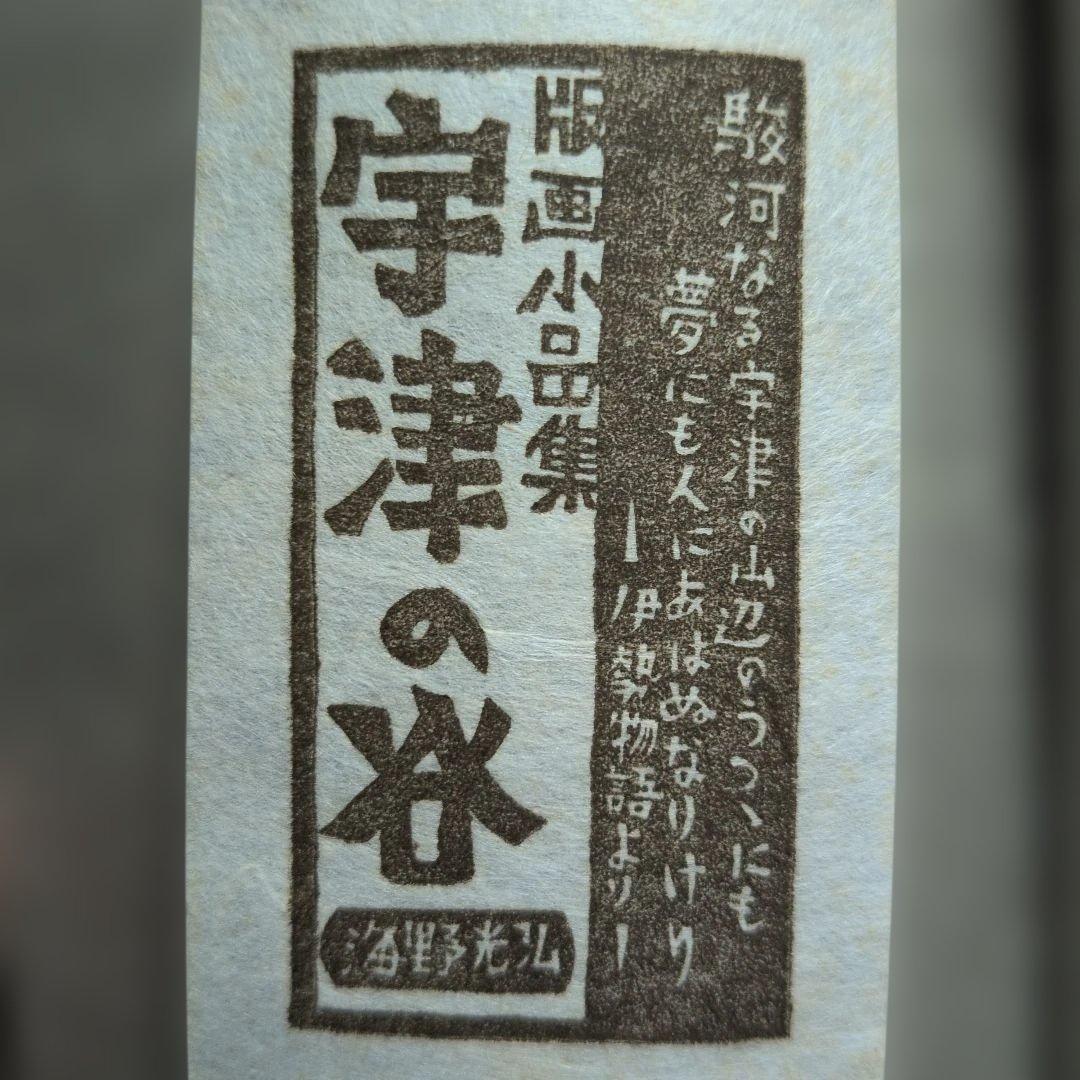 駿河なる宇津の山辺のうつゝにも
夢にも人にあはぬなりけり
ー伊勢物語よりー
版画小品集
宇津の谷
海野光弘